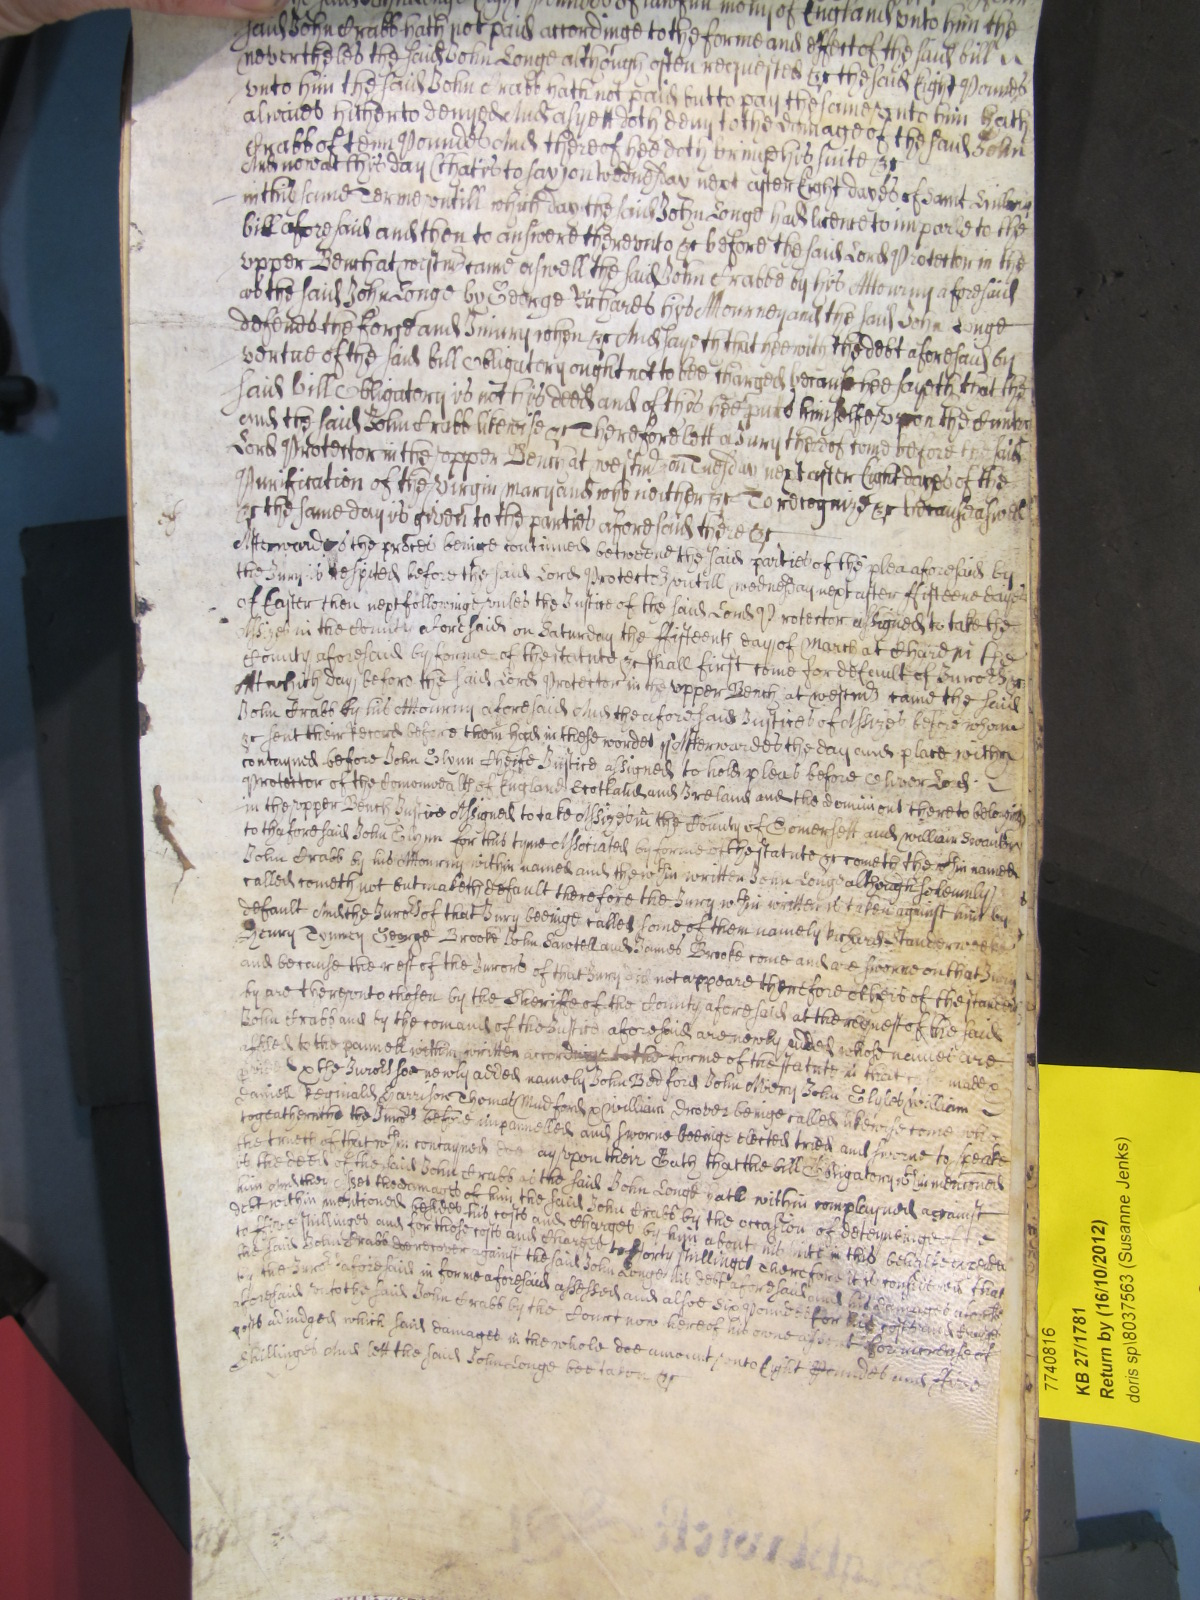 the said John Longe Eight Poundes of lawfull mony of England unto him the
said John Crabb hath not paid accordinge to the forme and effect of the said bill
nevertheles the said John Longe although often requested &c the said Eight Poundes
unto him the said John Crabb hath not paid but to pay the same unto him hath
alwaies hitherto denyed And as yett doth deny to the damage of the said John
Crabb of tenn Poundes And thereof hee doth bringe his suite &c
And now at this day (that is to say) on wednesday next after Eight dayes of Saint
in this same Terme untill which day the said John Longe had licence to imparle to the
bill aforesaid and then to answere thereunto &c before the said Lord Protector in the
upper Bench at westmr came aswell the said John Crabbe by his Attorny aforesaid
as the said John Longe by George Richards his Attourney and the said John Longe
defends the forse and Iniury when &c And sayeth that hee with the debt aforesaid by
vertue of the said bill Obligatory ought not to bee charged because hee sayeth that the
said bill Obligatory is not his deed and of this hee puts himselfe upon the Country
And the said John Crabb likewise &c Therefore lett a Jury thereof come before the said
Lord Protector in the upper Bench at westmr on Tuesday next after Eight dayes of the
Purification of the virgin mary and who neither &c To recognize &c because aswell
&c the same day is given to the parties aforesaid there &c
Afterwards the proces beinge continued betweene the said parties of the plea aforesaid by
the Jury is respited before the said Lord Protector untill wednesday next after fifteene dayes
of Easter then next followinge unles the Justice of the said Lord Protector assigned to take the
Assizes in the County aforesaid on Saturday the fifteenth day of March at Chard in the
County aforesaid by forme of the statute &c shall first come for default of Jurors &c
At which day before the said Lord Protector in the upper Bench at westmr came the said
John Crabb by his Attourny aforesaid And the aforesaid Justices of Assizes before whom
&c sent their Record before them had in these wordes Afterwardes the day and place within
contayned before John Glynn Cheife Justice assigned to hold pleas before Oliver Lord
Protector of the Comonwealth of England Scotland and Ireland and the dominions thereto belonging
in the upper Bench Justice Assigned to take Assizes in the County of Somersett and william
to the aforesaid John Glynn for this tyme Associated by forme of the statute &c cometh the within named
John Crabb by his Attourny within named and the within written John Longe although solemnly
called cometh not but maketh default therefore the Jury within written is taken against him by
default And the Jurors of that Jury beeinge called some of them namely Richard
Henry George Brooke John Sawtell and James Brooke come and are sworne on that Jury
and because the rest of the Jurors of that Jury did not appeare therefore others of the standers
by are thereunto chosen by the Sheriffe of the County aforesaid at the request of the said
John Crabb and by the comand of the Justice aforesaid are newly added whose names are
affiled to the pannell within written accordinge to the forme of the statute in that made &
the Jurors soe newly added namely John Bedford John Avery John william
Daniell Reginald Harrison Thomas Mudford & william Drover beinge called likewise come
togeather with the Jurors before impannelled and sworne beeinge elected tried and sworne to speake
the trueth of that within contayned say upon their Oath that the bill Obligatory within mencioned
is the deed of the said John Longe hath within complayned against
him And they Asses the damages of him the said John Crabb by the occasion of deteyneinge
debt within mentioned besides his costs and Charges by him about his suite in this behalfe
to five shillinges and for those costs and Charges to forty shillinges Therefore it is considered that
the said John Crabb doe recover against the said John Longe his debt aforesaid and his damages
by the Jurors aforesaid in forme aforesaid assessed and alsoe Six Poundes for his costs and Charges
aforesaid unto the said John Crabb by the Court now here of his owne assent for increase of
costs adiudged which said damages in the whole doe amount unto Eight Poundes and five
Shillinges And lett the said John Longe bee taken &c
7740816
KB 27/1781
Return by (16/10/2012)
doris sp\8037563 (Susanne Jenks)